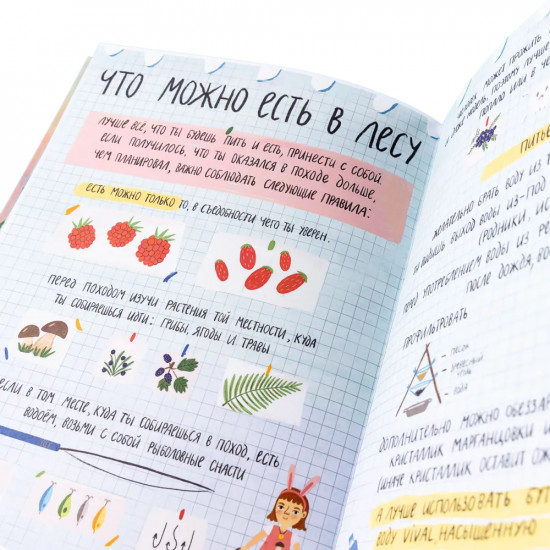 ЧТО МОЖНО ЕСТЬ В ЛЕСУ
ЛУЧШЕ ВСЁ, ЧТО ТЫ БУДЕШЬ ПИТЬ И ЕСТЬ, ПРИНЕСТИ С СОБОЙ.
ЕСЛИ ПОЛУЧИЛОСЬ, ЧТО ТЫ ОКАЗАЛСЯ В ПОХОДЕ ДОЛЬШЕ,
ЧЕМ ПЛАНИРОВАЛ, ВАЖНО СОБЛЮДАТЬ СЛЕДУЮЩИЕ ПРАВИЛА:
ЕСТЬ МОЖНО ТОЛЬКО ТО, В СЪЕДОБНОСТИ ЧЕГО ТЫ УВЕРЕН.
ПЕРЕД ПОХОДОМ ИЗУЧИ РАСТЕНИЯ ТОЙ МЕСТНОСТИ, КУДА
ТЫ СОБИРАЕШЬСЯ ИДТИ: ГРИБЫ, ЯГОДЫ И ТРАВЫ
ЕСЛИ В ТОМ МЕСТЕ, КУДА ТЫ СОБИРАЕШЬСЯ В ПОХОД, ЕСТЬ
ВОДОЁМ, ВОЗЬМИ С СОБОЙ РЫБОЛОВНЫЕ СНАСТИ
МОЖЕТ ПРОЖИТЬ
ПОЭТОМУ ЛУЧШЕ
ПОПАЛО ИЛИ В Ч
ПИТЬЕ
ЖЕЛАТЕЛЬНО БРАТЬ ВОДУ ИЗ
ТЫ ВИДИШЬ ВЫХОД ВОДЫ ИЗ-ПОД
(РОДНИКИ, ИС
ПЕРЕД УПОТРЕБЛЕНИЕМ ВОДЫ ИЗ РЕ
ПОСЛЕ ДОЖДЯ, ВО
ПРОФИЛЬТРОВАТЬ
ПЕСОК
ДРЕВЕСНЫЙ
УГОЛЬ
ДОПОЛНИТЕЛЬНО МОЖНО ОБЕЗЗАР
КРИСТАЛЛИК МАРГАНЦОВКИ И
(ИНАЧЕ КРИСТАЛЛИК ОСТАВИТ ОЖ
А ЛУЧШЕ ИСПОЛЬЗОВАТЬ БУТ
ВОДУ VIVAL, НАСЫЩЕННУЮ